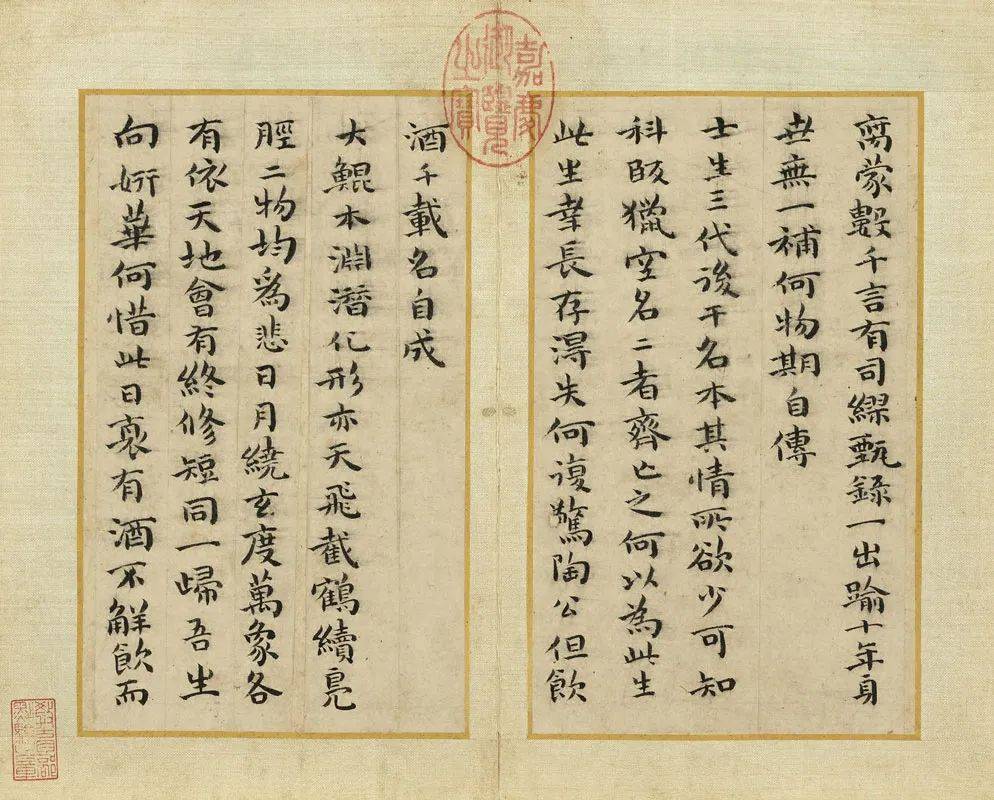 嘉慶御覽之寶
蒙千言有司繆甄錄一出踰十年身
世無一補何物期自傳
士生三代後干名本其情所欲少可知
科獵空名二者齊亡之何以為此生
此生幸長存得失何復驚陶公但飲
酒千載名自成
大鯤本淵潛化形亦天飛截鶴續鳧
脛二物均爲悲日月繞玄度萬象各
有依天地會有終修短同一歸吾生
向妍華何惜此日衰有酒不解飲而